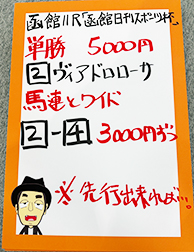 函館11R「函館日刊スポーツ杯」
単勝 5000円
2ヴィアドロローサ
馬連とワイド
2-4 3000円ずつ
※先行出来れば!!